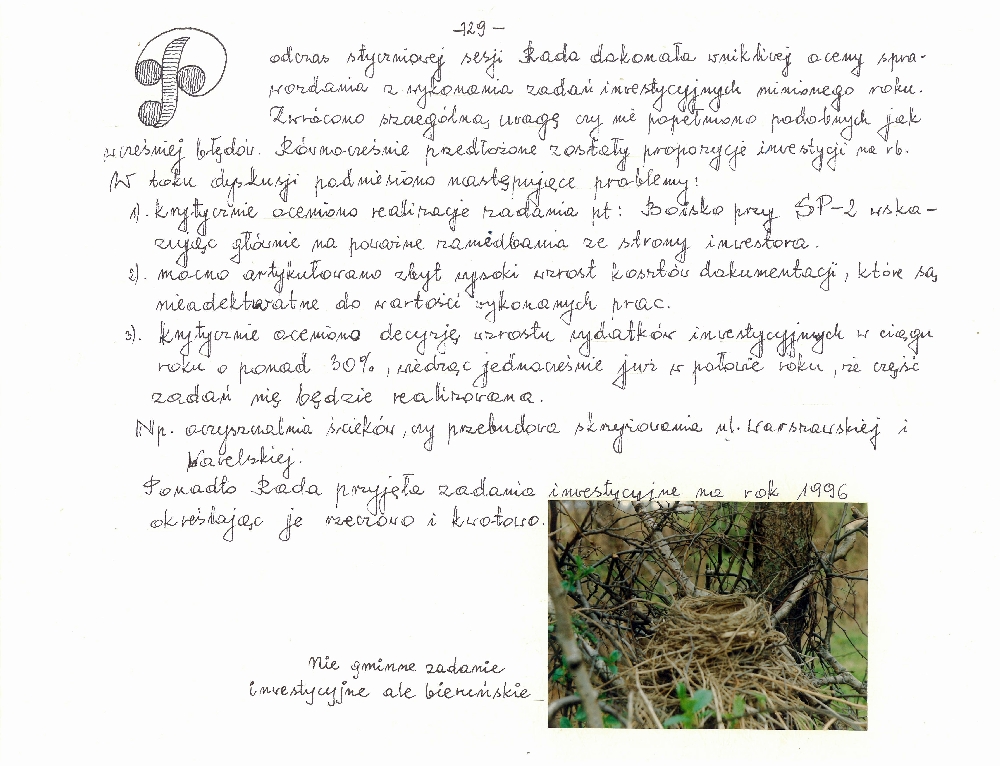 -129-
Podczas styczniowej sesji Rada dokonała wnikliwej oceny spra-
wozdania z wykonania zadań inwestycyjnych minionego roku.
Zwrócono szczególną uwagę czy nie popełniono podobnych jak
wcześniej błędów. Równocześnie przedłożone zostały propozycje inwestycji na rb.
W toku dyskusji podniesiono następujące problemy:
1). krytycznie oceniono realizacje zadania pt: Boisko przy SP-2 wska-
zując głównie na poważne zaniedbania ze strony inwestora.
2). mocno artykułowano zbyt wysoki wzrost kosztów dokumentacji, które są
nieadekwatne do wartości wykonanych prac.
3). krytycznie oceniono decyzję wzrostu wydatków inwestycyjnych w ciągu
roku o ponad 30%, wiedząc jednocześnie już w połowie roku, że część
zadań nię będzie realizowana.
Np. oczyszczalnia ścieków, czy przebudowa skrzyżowania ul. Warszawskiej i
Wawelskiej.
Ponadto Rada przyjęła zadania inwestycyjne na rok 1996
określając je rzeczowo i kwotowo.
Nie gminne zadanie
inwestycyjne ale bieruńskie